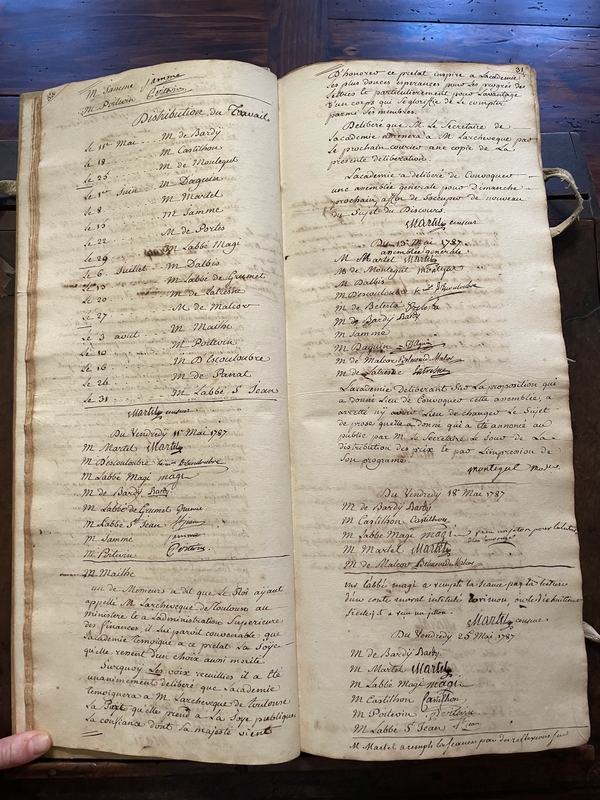 M. Jamme jamme
M. Poitevin Poitevin
Distribution du Travail
Le 11e Mai .. M de Bardy
Le 18 .. M Castilhon
Le 25 .. M de Montegut
Le 1er Juin .. M Daguin
Le 8 .. M Martel
Le 15 .. M Jamme
Le 22 .. M de Portes
Le 29 .. M Labbé Magi
Le 6 Juillet .. M Dalbis
Le 13 .. M Labbé de Grumet
Le 20 .. M de Latresne
Le 27 .. M de Malcor
Le 3 aout M Mailhe
Le 10 M Poitevin
Le 16 M Descouloubre
Le 24 M de Panat
Le 31 M Labbé St Jean
Martel censeur
Du Vendredy 11e Mai 1787
M Martel Martel
M Descouloubre
M Labbé Magi magi
M de Bardy Bardy
M Labbé de Grumet Grumet
M Labbé St Jean St jean
M Jamme jamme
M Poitevin Poitevin
M Mailhe
un de Messieurs a dit que Le Roi ayant
appellé M Larcheveque de Toulouse au
ministere et a Ladministration Superieure
des finances, il lui paroit convenable que
Lacademie temoigne a ce prelat La Joye
qu'elle ressent d'un choix aussi merité
Surquoy Les voix recuillies il a eté
unanimement deliberé que Lacademie
temoignera a M Larcheveque de Toulouse
La Part qu'elle prend a La Joye publique
La confiance dont sa majesté vient
31
D'honorer ce prelat inspire a Lacademie
Les plus douces esperances pour Les progrès des
Lettres et particulierement pour Lavantage
d'un corps qui se glorifie de Le compter
parmi ses membres.
Deliberé que M Le Secretaire de
Lacademie adressera a M Larcheveque par
Le prochain courier une copie de La
presente deliberation.
Lacademie a deliberé de Convoquer
une assemblée generale pour Dimanche
prochain, affin de s'occuper de nouveau
du Sujet du Discours.
Martel censeur
Du 13e Mai 1787
assemblée generale
M Martel Martel
M de Montegut montegut
M Dalbis
M Descouloubre
M de Belesta Belesta
M de Bardy Bardy
M Jamme
M Daguin Daguin
M de Malcor Belmond Malcor
M de Latresne Latresne
Lacademie deliberant Sur La proposition qui
a donné Lieu de Convoquer cette assemblée, a
arretté n'y avoir Lieu de changer Le Sujet
de prose quelle a donné qui a eté annoncé au
public par M Le Secretaire Le Jour de La
distribution des prix et par Limpression de
Son programe.
montegut
Du Vendredy 18e Mai 1787
M de Bardy Bardy
M Castilhon Castilhon
M Labbé Magi magi
M Martel Martel
M de Malcor Belmond Malcor
M. Labbé magi a rempli la seance par la lecture
d'un conte moral intitulé ou le dix huitieme
Siecle, & a eu un jetton.
Martel censeur
Du Vendredy 25e Mai 1787
M de Bardy Bardy
M Martel Martel
M Labbé Magi magi
M Castilhon Castilhon
M Poitevin Poitevin
M Labbé St Jean St jean
M Martel a rempli la seance par des reflexions sur